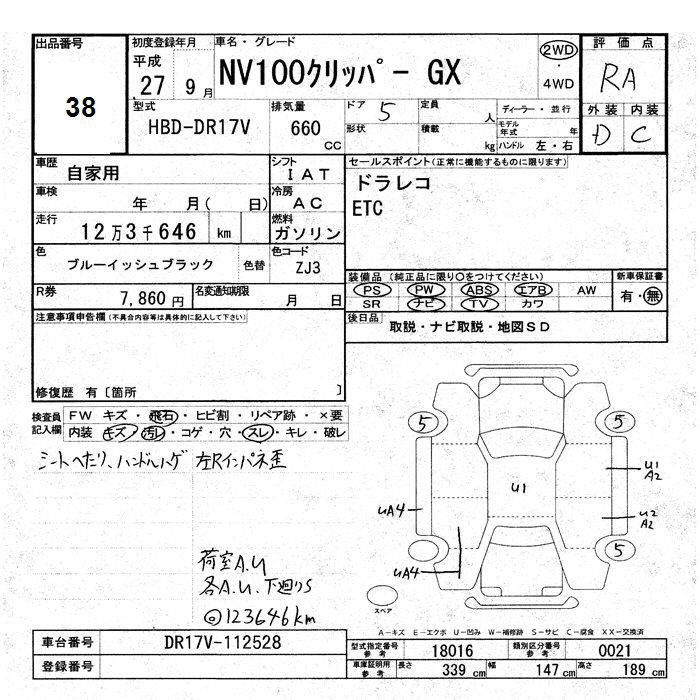 出品番号
38
初度登録年月
平成
27 9 月
車名・グレード
NV100クリッパー GX
2WD
・
4WD
評価点
RA
外装 内装
D C
型式
HBD-DR17V
排気量
660
CC
ドア
5
定員
人
形状
積載
kg
ディーラー・並行
モデル年式
年
ハンドル 左・右
車歴
自家用
シフト
IAT
車検
年 月( 日)
冷房
AC
走行
12万3千646 km
燃料
ガソリン
色
ブルーイッシュブラック
色替
色コード
ZJ3
R券
7,860 円
名変通知期限
月 日
セールスポイント(正常に機能するものに限ります)
ドラレコ
ETC
装備品 (純正品に限り○をつけてください)
新車保証書
PS PW ABS エアB AW
有・無
SR ナビ TV カワ
後日品
取説・ナビ取説・地図SD
注意事項申告欄(不具合内容等は具体的に記入して下さい)
修復歴 有〔箇所 〕
検査員
記入欄
FW キズ・飛石・ヒビ割・リペア跡・×要
内装 キズ・汚レ・コゲ・穴・スレ・キレ・破レ
シートへたり、ハンドルハゲ 左Rインパネ歪
荷室A.U
各A.U.下廻りS
@123646km
5
5
U1
A2
U1
UA4
U2
A2
UA4
5
スペア
A-キズ E-エクボ U-凹み W-補修跡 S-サビ C-腐食 XX-交換済
車台番号
DR17V-112528
登録番号
型式指定番号
参考
18016
類別区分番号
参考
0021
車庫証明用
参考
長さ
339 cm
幅
147 cm
高さ
189 cm